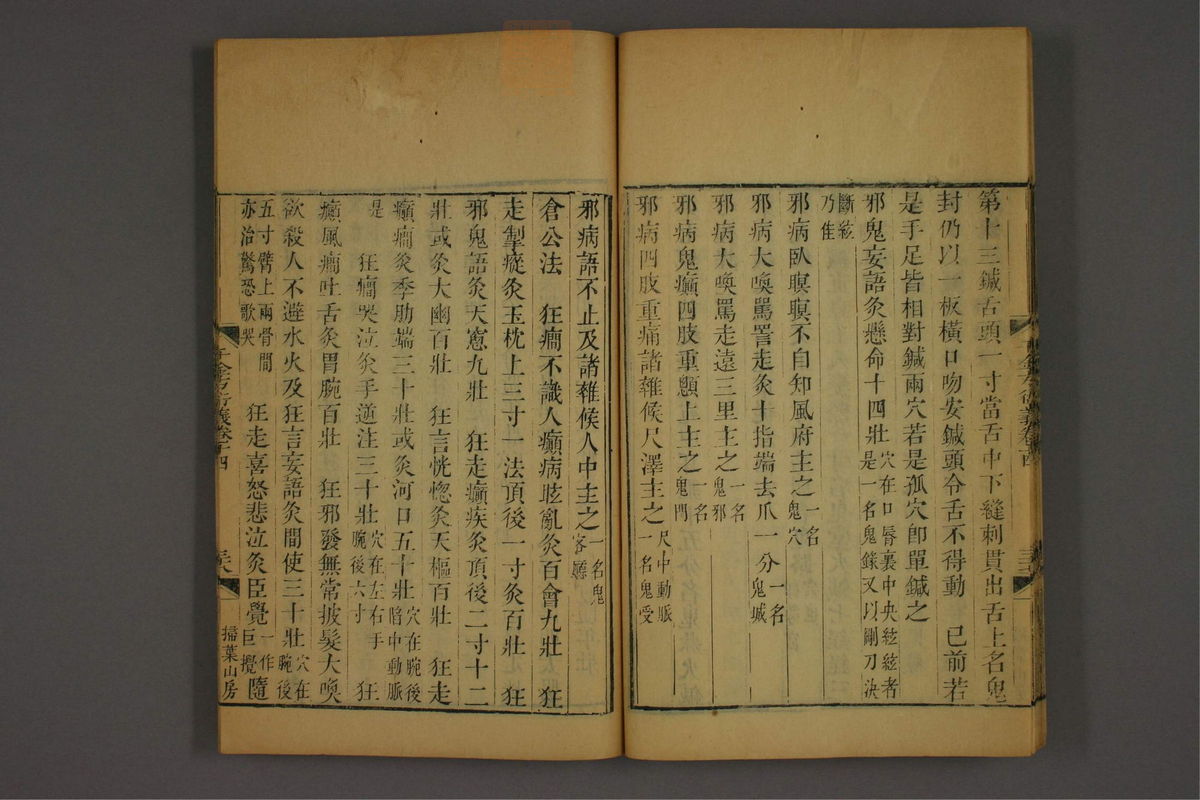 第十三鍼舌頭一寸當舌中下縫刺貫出舌上名鬼
封仍以一板橫口吻安鍼頭令舌不得動　已前若
是手足皆相對鍼兩穴若是孤穴卽單鍼之
邪鬼妄語灸懸命十四壯穴在口脣裏中央絃絃者是一名鬼錄又以剛刀決
斷絃乃佳
邪病臥瞑瞑不自知風府主之一名鬼穴
邪病大喚罵詈走灸十指端去爪一分一名鬼城
邪病大喚罵走遠三里主之一名鬼邪
邪病鬼癲四肢重顖上主之一名鬼門
邪病四肢重痛諸雜候尺澤主之尺中動脈一名鬼受
邪病語不止及諸雜候人中主之一名鬼客廳
倉公法　狂癇不識人癲病眩亂灸百會九壯　狂
走掣瘲灸玉枕上三寸一法頂後一寸灸百壯　狂
邪鬼語灸天窻九壯　狂走癲疾灸頂後二寸十二
壯或灸大幽百壯　狂言恍惚灸天樞百壯　狂走
癲癇灸季肋端三十壯或灸河口五十壯穴在腕後陷中動脈
是　狂癇哭泣灸手逆注三十壯穴在左右手腕後六寸　狂
癲風癇吐舌灸胃脘百壯　狂邪發無常披髮大喚
欲殺人不避水火及狂言妄語灸間使三十壯穴在腕後
五寸臂上兩骨間亦治驚恐歌哭　狂走喜怒悲泣灸臣覺一作巨攪隨
千金方衍義卷十四
掃葉山房